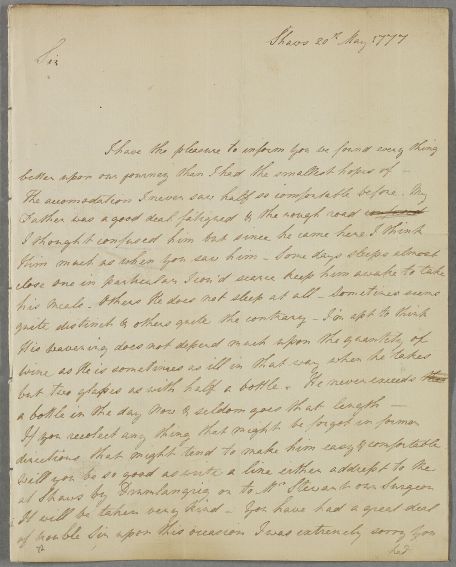 Shaws 20th May 1777
Sir
I have the pleasure to inform you we found every thing
better upon our journey than I had the smallest hopes of –
The acomodation I never saw half so comfortable before. My
Father was a good deal fatigued & the rough road confused
I thought confused him but since he came here I think
him much as when you saw him – Some days sleeps almost
close one in particular I cou'd scarce keep him awake to take
his meals – Others He does not sleep at all – Sometimes seems
quite distinct & others quite the contrary – I'm apt to think
His heavering does not depend much upon the quantity of
wine as He is sometimes as ill in that way when he takes
but two glasses as with half a bottle. He never exceeds
a bottle in the day Now & seldom goes that length –
If you recolect any thing that might be forgot in former
directions that might tend to make him easy & comfortable
will you be so good as write a line either addrest to me
at Shaws by Drumlangrig or to Mr Stewart our Surgeon
It will be taken very kind – You have had a great deal
of trouble Sir upon this occasion I was extremely sorry you
had